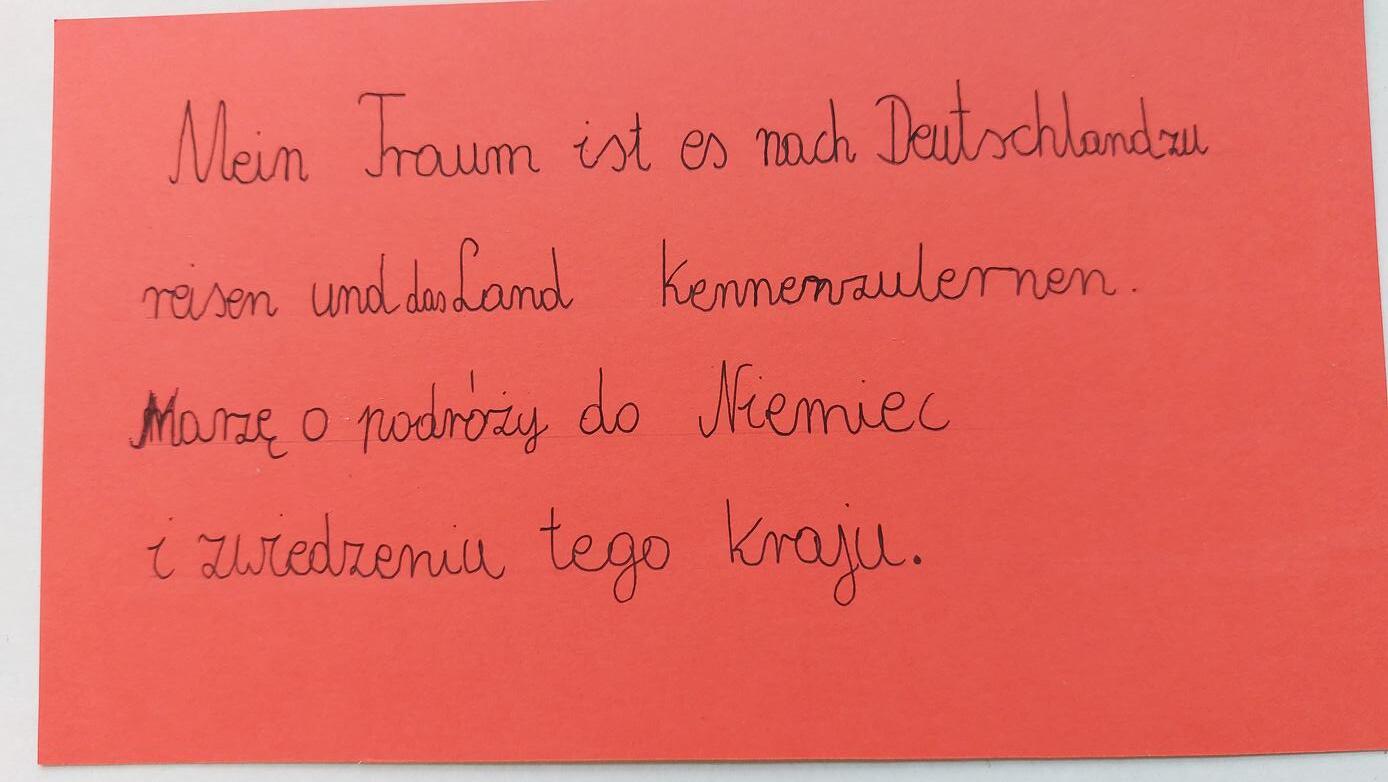 Mein Traum ist es nach Deutschland zu
reisen und das Land kennenzulernen.
Marzę o podróży do Niemiec
i zwiedzeniu tego kraju.